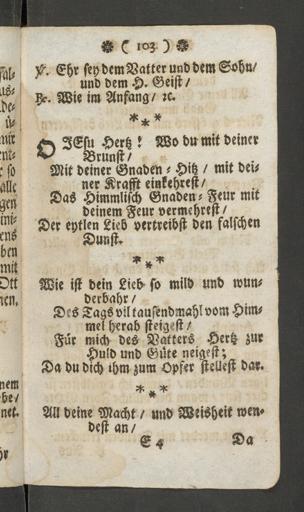 ❋ ( 103 ) ❋
V. Ehr sey dem Vatter und dem Sohn/
und dem H. Geist/
R. Wie im Anfang/ ꝛc.
* * *
O JEsu Hertz! Wo du mit deiner
Brunst/
Mit deiner Gnaden-Hitz/ mit dei-
ner Krafft einkehrest/
Das Himmlisch Gnaden-Feur mit
deinem Feur vermehrest/
Der eytlen Lieb vertreibst den falschen
Dunst.
* * *
Wie ist dein Lieb so mild und wun-
derbahr/
Des Tags vil tausendmahl vom Him-
mel herab steigest/
Für mich des Vatters Hertz zur
Huld und Güte neigest;
Da du dich ihm zum Opfer stellest dar.
* * *
All deine Macht/ und Weisheit wen-
dest an/
E 4 Da